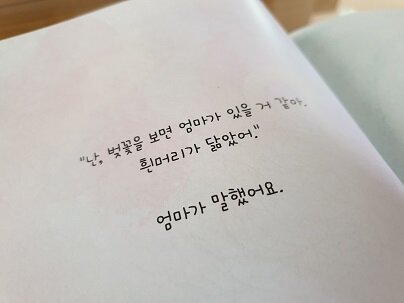 "난, 벚꽃을 보면 엄마가 있을 거 같아.
흰머리가 닮았어."
엄마가 말했어요.